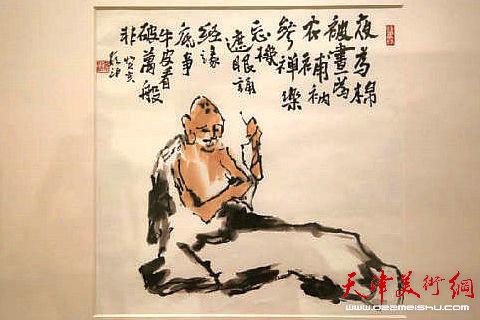 夜為棉
被晝為
衣補衲
參禪樂
忘機
遮眼誦
經緣
底事
牛皮看
破萬般
非
癸亥
天津美術網
www.022meishu.com